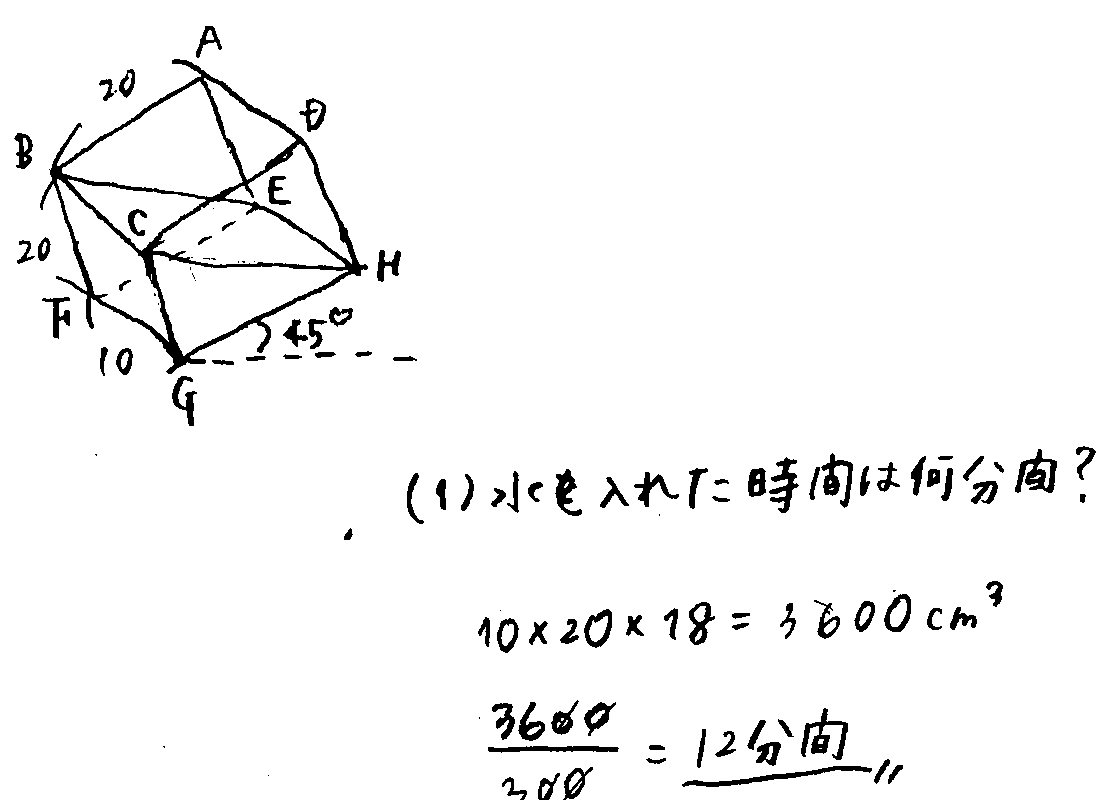 A
20
D
B
E
C
20
H
F
45°
10
G
(1)水を入れた時間は何分間?
10×20×18=3600cm³
3600
300
=12分間